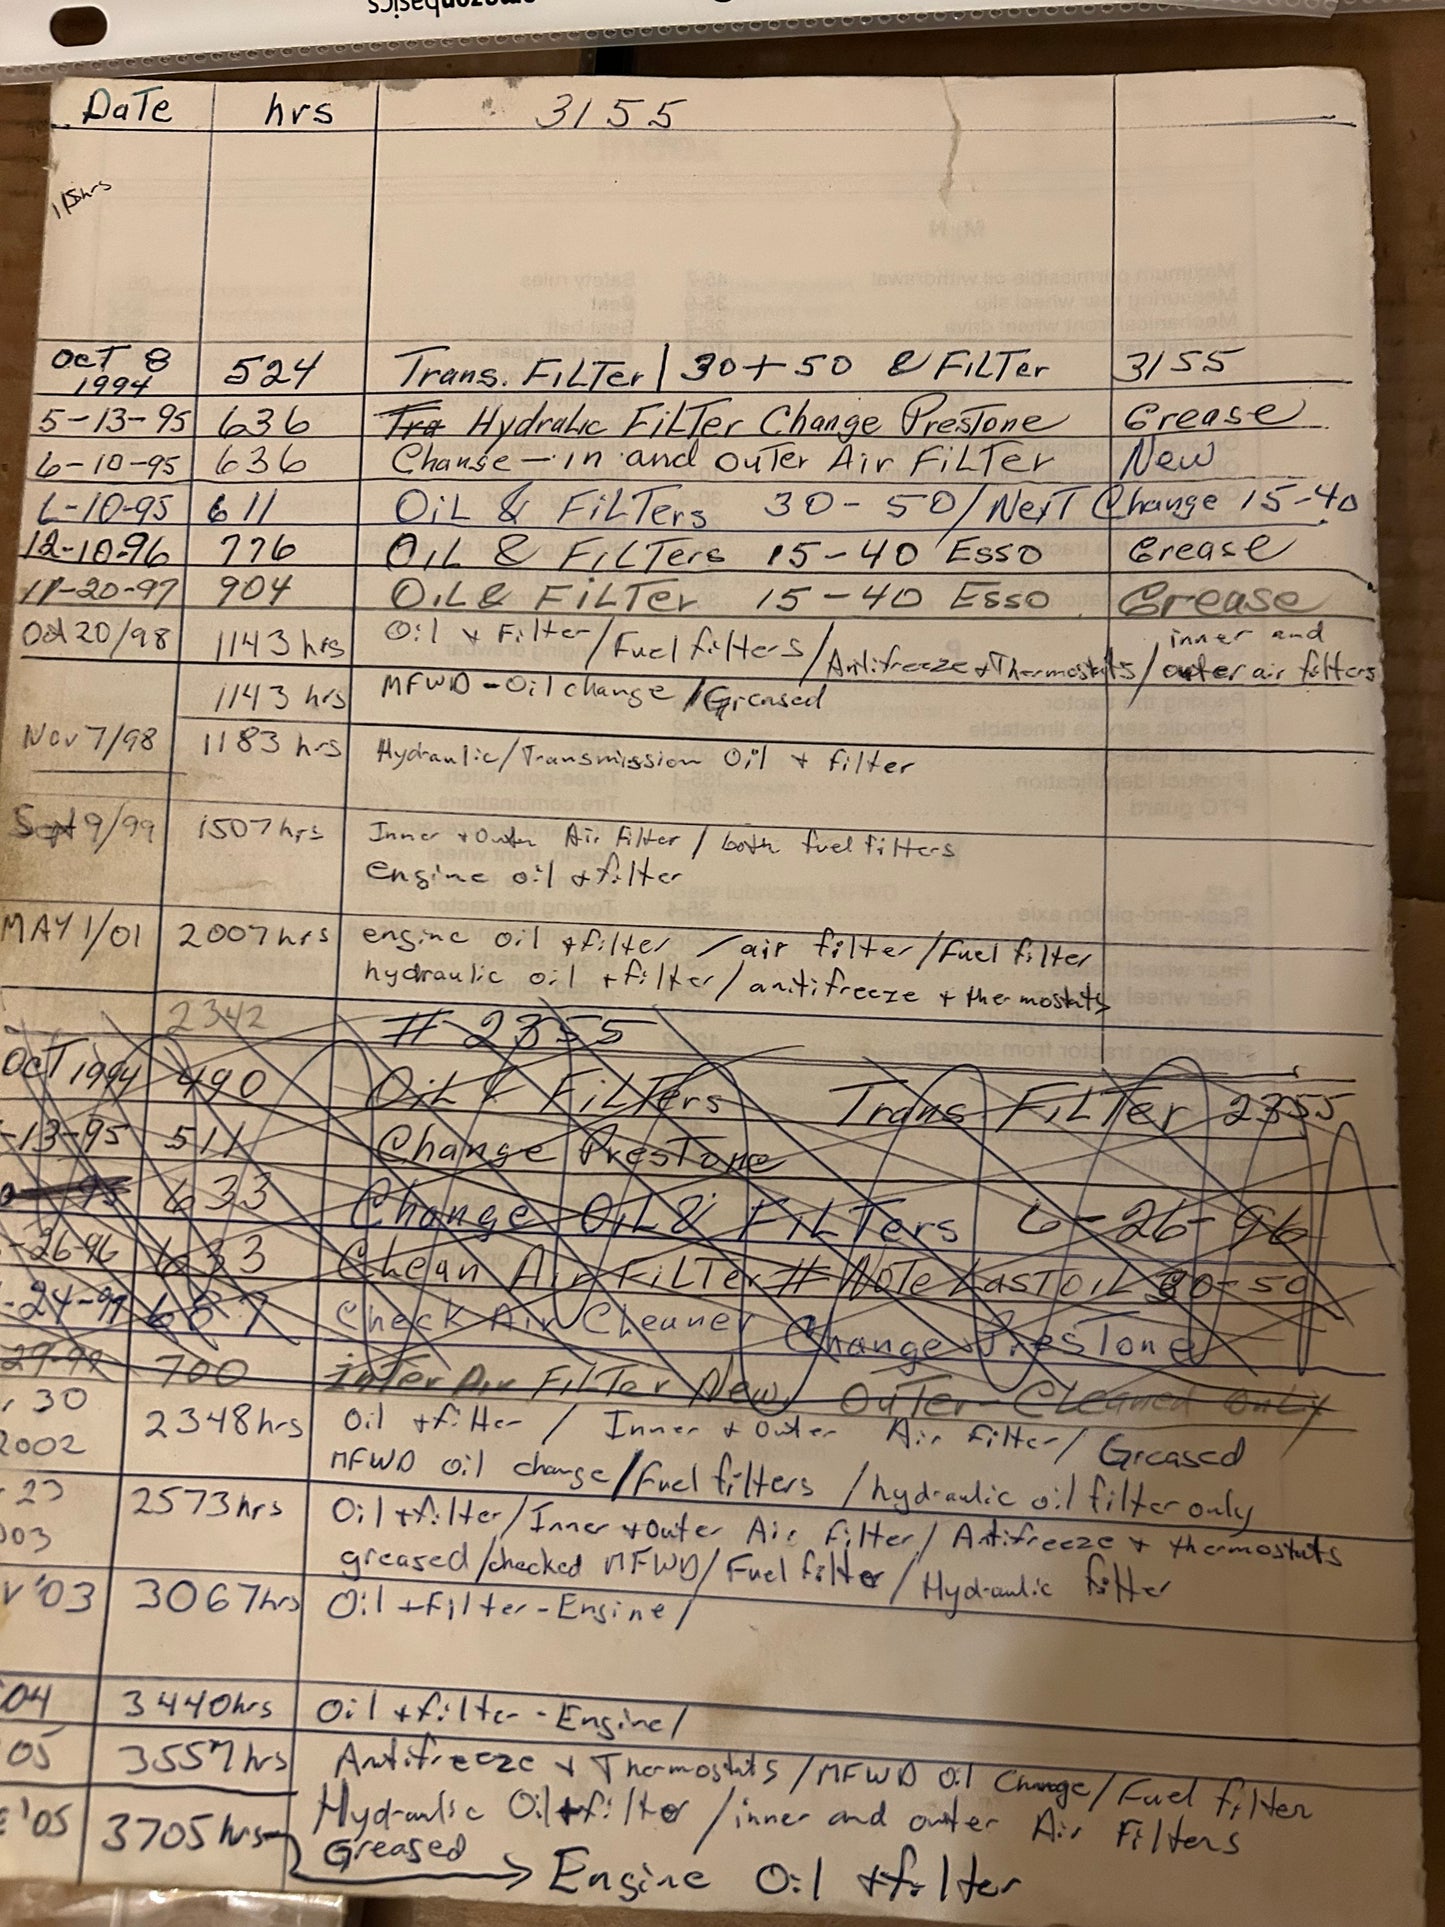 amazonbasics
Date hrs 3155
115hrs
Oct 8 1994 524 Trans. Filter / 30+50 & Filter 3155
5-13-95 636 Hydralic Filter Change Prestone Grease
6-10-95 636 Change-in and outer Air Filter New
6-10-95 611 Oil & Filters 30-50/Next Change 15-40
12-10-96 776 Oil & Filters 15-40 Esso Grease
11-20-97 904 Oil & Filter 15-40 Esso Grease
Oct 20/98 1143 hrs Oil + Filter/Fuel filters/Antifreeze + Thermostats/inner and outer air filters
1143 hrs MFWD-Oil change/Greased
Nov 7/98 1183 hrs Hydraulic/Transmission Oil + filter
Sept 9/99 1507hrs Inner + Outer Air Filter/both fuel filters
engine oil + filter
MAY 1/01 2007hrs engine oil + filter/air filter/Fuel filter
hydraulic oil + filter/antifreeze + thermostats
2342 # 2355
Oct 1994 490 Oil & Filters Trans Filter 2355
-13-95 511 Change Prestone
95 633 Change Oil & Filters 6-26-96
-26-96 633 Clean Air Filter # Note Last oil 30-50
-24-99 687 Check Air Cleaner Change Prestone
29-99 700 inter Air Filter New Outer-Cleaned Only
30 2002 2348hrs Oil + filter / Inner + Outer Air filter/Greased
MFWD oil change/Fuel filters/hydraulic oil filter only
23 003 2573hrs Oil + filter/Inner + Outer Air Filter/Antifreeze + thermostats
greased/checked MFWD/Fuel filter/Hydraulic filter
v '03 3067hrs Oil + Filter-Engine/
'04 3440hrs Oil + filter-Engine/
05 3557hrs Antifreeze + Thermostats/MFWD Oil Change/Fuel filter
Hydraulic Oil + filter/inner and outer Air Filters
'05 3705hrs Greased
Engine Oil + filter